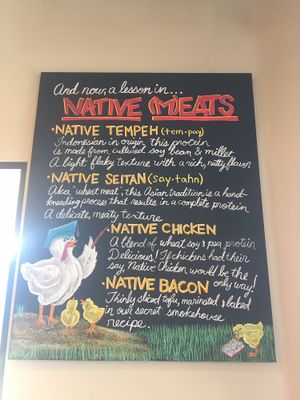 And now, a lesson in...
NATIVE (M)EATS
• NATIVE TEMPEH (tem·pay)
Indonesian in origin this protein
is made from cultured soy bean & millet
A light flaky texture with a rich, nutty flavor
• NATIVE SEITAN (say·tahn)
Aka "wheat meat", this Asian tradition is a hand-
kneading process that results in a complete protein
A delicate, meaty texture
• NATIVE CHICKEN
A blend of wheat soy & pea protein
Delicious! If chickens had their
say Native Chicken would be the
only way!
• NATIVE BACON
Thinly sliced tofu, marinated & baked
in our secret smokehouse
recipe.